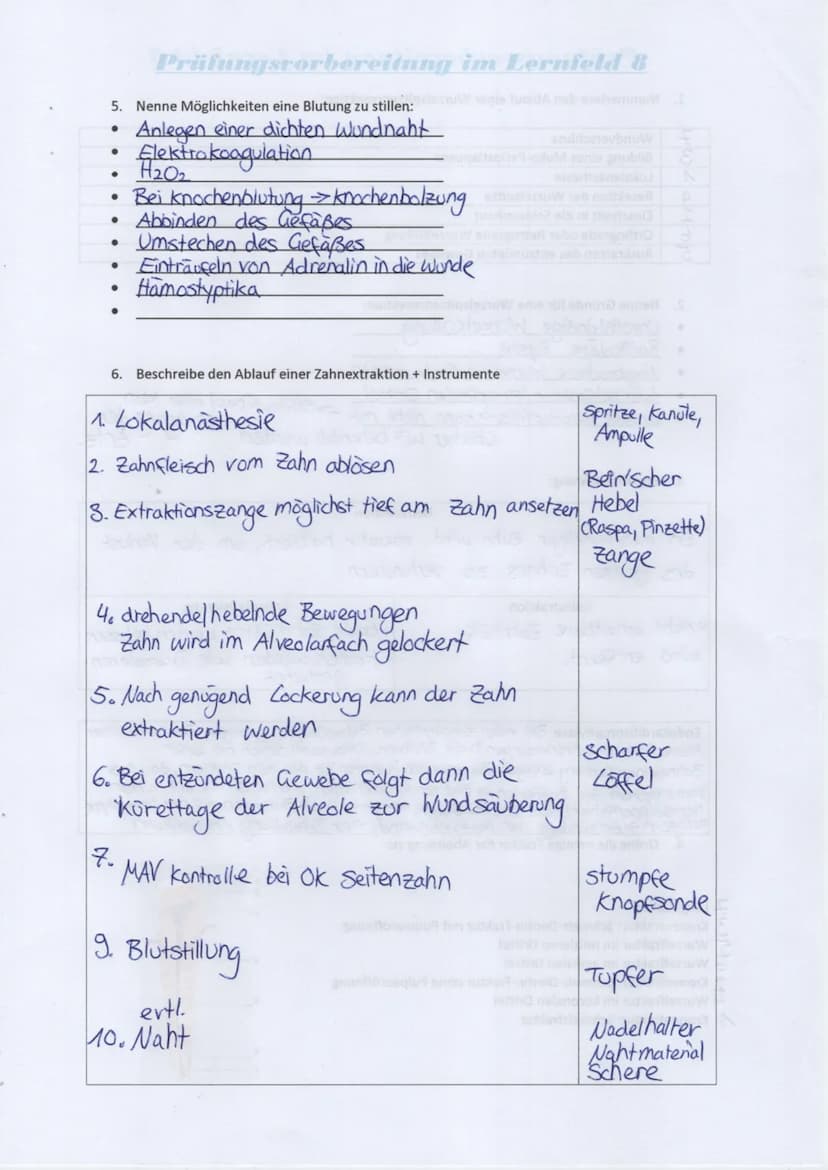 Prüfungsvorbereitung im Lernfeld 8
5. Nenne Möglichkeiten eine Blutung zu stillen:
• Anlegen einer dichten Wundnaht
• Elektrokoagulation
• H2O2
• Bei Knochenblutung → Knochenbolzung
• Abbinden des Gefäßes
• Umstechen des Gefäßes
• Einträufeln von Adrenalin in die Wunde
• Hämostyptika
•
6. Beschreibe den Ablauf einer Zahnextraktion + Instrumente
1. Lokalanästhesie
Spritze, Kanüle,
Ampulle
2. Zahnfleisch vom Zahn ablösen
Bein'scher
3. Extraktionszange möglichst tief am Zahn ansetzen
Hebel
(Raspa, Pinzette)
Zange
4. drehende/hebelnde Bewegungen
Zahn wird im Alveolarfach gelockert
5. Nach genügend Lockerung kann der Zahn
extraktiert werden
6. Bei entzündeten Gewebe folgt dann die
Kürettage der Alveole zur Wundsäuberung
scharfer
Löffel
7. MAV Kontrolle bei OK Seitenzahn
stumpfe
Knopfsonde
9. Blutstillung
Tupfer
evtl.
10. Naht
Nadelhalter
Nahtmaterial
Schere